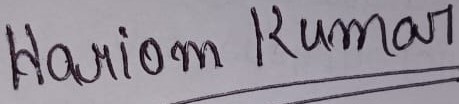 Hariom Kumar